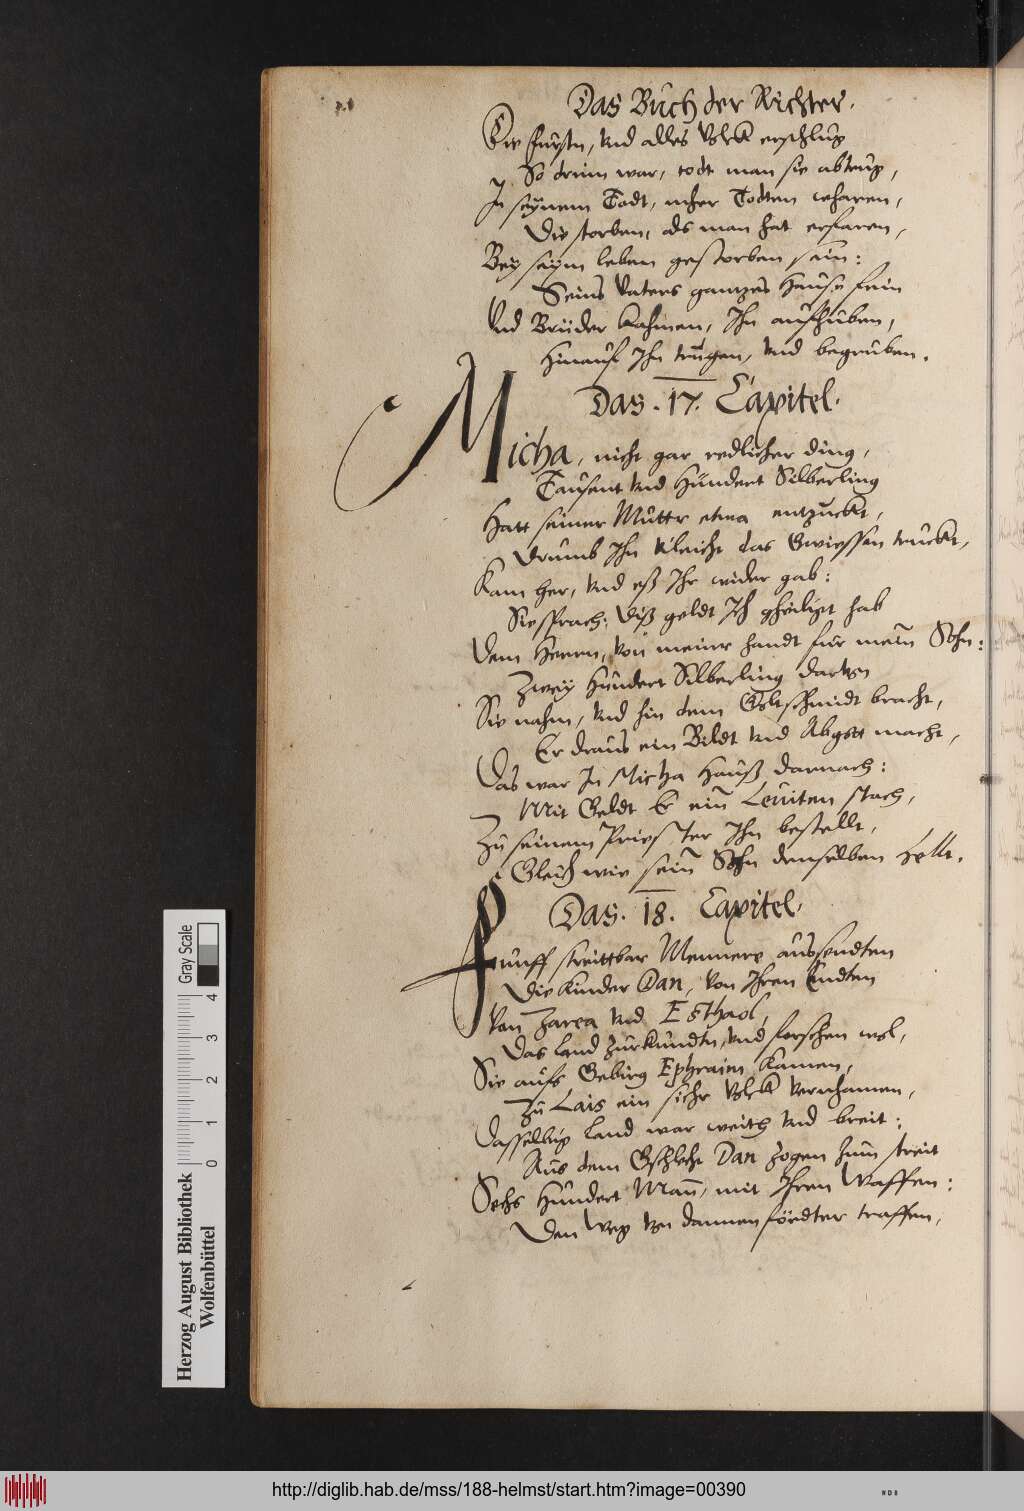 Das Buch der Richter.
Die Fursten, Vnd alles Volck erschlug
So drinn war, todt man sie abtrug,
In seynem Todt, mher Todten wharen,
Die storben, als man hat erfaren,
Bey seym leben gestorben sein:
Seins Vaters gantzes Hauß fein
Vnd Brüder kahmen, Ihn auffhuben,
Hinauf Ihn trugen, Vnd begruben.
Das .17. Capitel.
Micha, nicht gar redlicher ding,
Tausent Vnd Hundert Silberling
Hatt seiner Mutter etwa entzuckt,
Drumb Ihn Vleicht das Gwiessen truckt,
Kam her, Vnd eß Ihr wider gab:
Sie sprach: Diß geldt Ich gheiligt hab
Dem Herrn, Von meiner handt fur mein Sohn:
Zwey Hundert Silberling darVon
Sie nahm, Vnd hin dem Goltschmidt bracht,
Er draus ein Bildt Vnd Abgott macht,
Das war In Micha Hauß darnach:
Mit Geldt Er ein Leuiten stach,
Zu seinem Priester Ihn bestellt,
Gleich wie sein Sohn denselben hellt.
Das. 18. Capitel.
Funff streittbar Mennere aussendten
Die kinder Dan, Von Ihren Endten
Von Zarea Vnd Esthaol,
Das land zurkundtn, Vnd forschen wol,
Sie aufs Gebirg Ephraim kamen,
Zu Lais ein sichr Volck Vernhamen,
Dasselbig land war weith Vnd breit:
Aus dem Gschlecht Dan zogen zum streit
Sechs Hundert Mann, mit Ihren Waffen:
Den Weg Von dannen fördter traffen,
Herzog August Bibliothek
Wolfenbüttel
0 1 2 3 4
Gray Scale
http://diglib.hab.de/mss/188-helmst/start.htm?image=00390
WDB